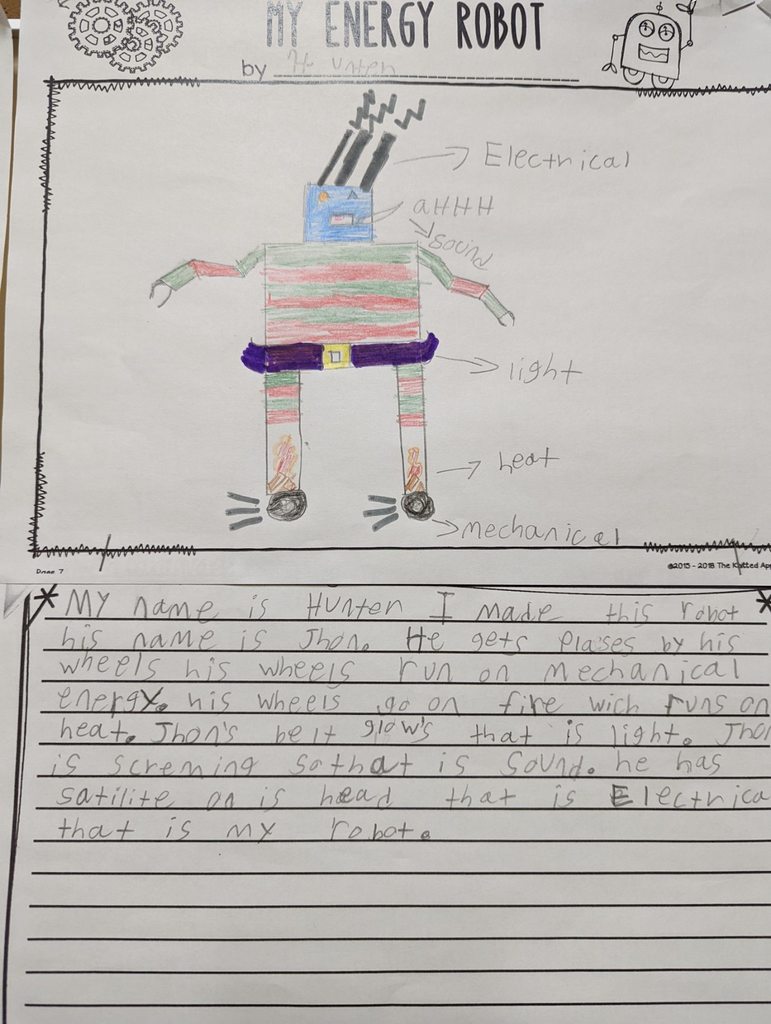 MY ENERGY ROBOT
by Hunten
Electrical
aHHH
sound
light
heat
mechanical
Page 7
©2015 - 2018 The Knotted Ap
MY name is Hunten I made this robot
his name is Jhon. He gets Plases by his
wheels his wheels run on mechanical
energy. his wheels go on fire wich runs on
heat. Jhon's belt glow's that is light. Jhon
is screming sothat is Sound. he has
satilite on is head that is Electrica
that is my robot.